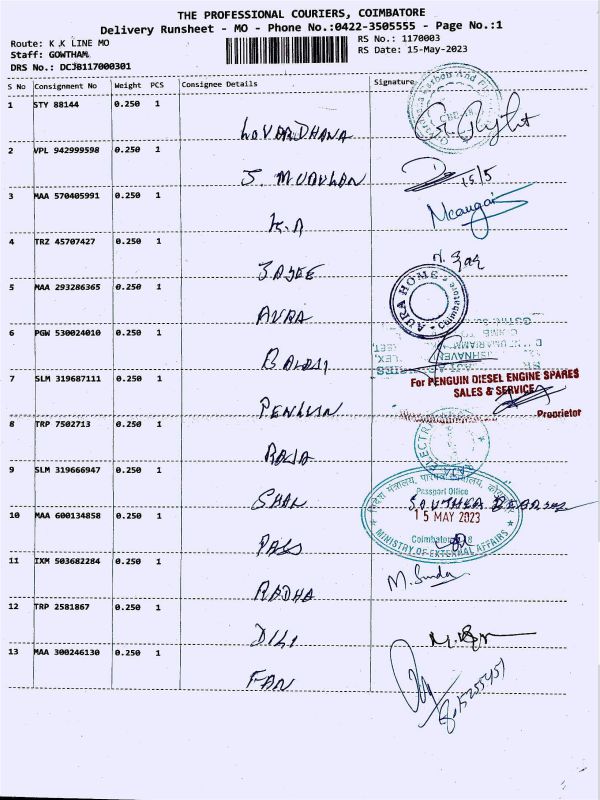 THE PROFESSIONAL COURIERS, COIMBATORE
Delivery Runsheet - MO - Phone No.:0422-3505555 - Page No.:1
Route: K.K LINE MO
RS No.: 1170003
Staff: GOWTHAM.
RS Date: 15-May-2023
DRS No.: DCJB117000301
S No Consignment No Weight PCS Consignee Details Signature
1 STY 88144 0.250 1
LOVARDHANA
2 VPL 942999598 0.250 1
15/5
3 MAA 570405991 0.250 1
K.A
4 TRZ 45707427 0.250 1
5 MAA 293286365 0.250 1
AURA HOME
Coimbatore
AURA
6 PGW 530024010 0.250 1
BALAJI
7 SLM 319687111 0.250 1
For PENGUIN DIESEL ENGINE SPARES
SALES & SERVICE
Proprietor
PENGUIN
8 TRP 7502713 0.250 1
RAJA
9 SLM 319666947 0.250 1
विदेश मंत्रालय,
Passport Office
15 MAY 2023
Coimbatore
MINISTRY OF EXTERNAL AFFAIRS
10 MAA 600134858 0.250 1
PASS
11 IXM 503682284 0.250 1
M. Sunda
RADHA
12 TRP 2581867 0.250 1
DILI
13 MAA 300246130 0.250 1
FAN